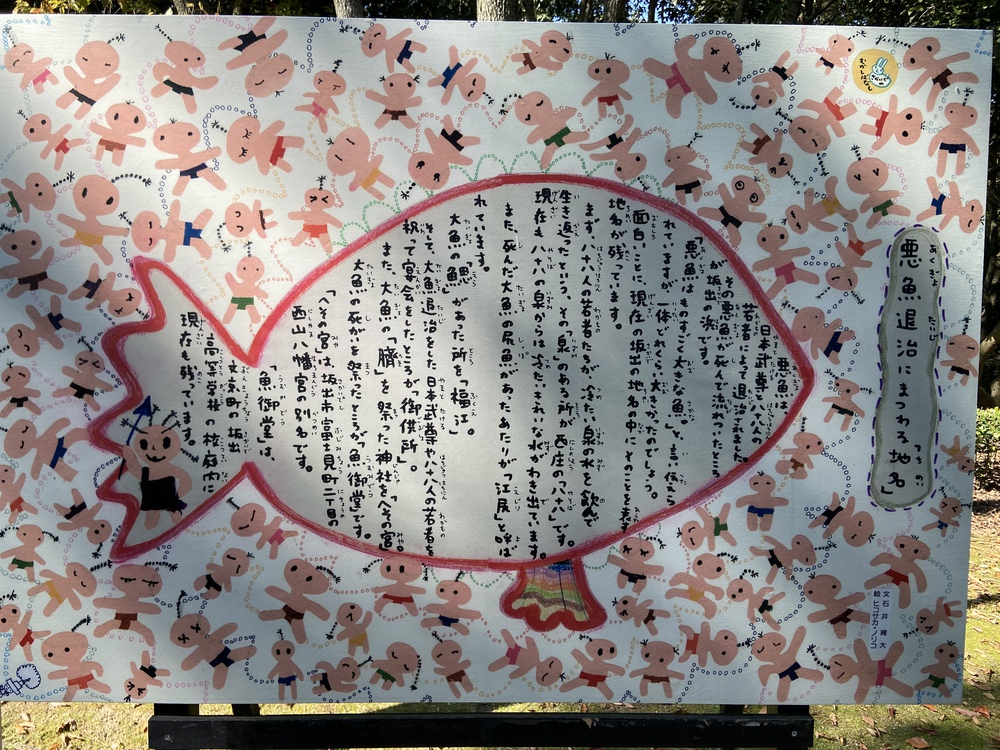 悪魚退治にまつわる地名
むかしばなし
悪魚は、
日本武尊と八八人の
若者によって退治されました。
その悪魚が死んで流れついたところ
が坂出の浜です。
「悪魚はものすごく大きな魚」と言い伝えら
れていますが、一体どれくらい大きかったのでしょう。
面白いことに、現在の坂出の地名の中に、そのことを表す
地名が残っています。
まず、八十八人の若者たちが、冷たい泉の水を飲んで
生き返ったという、その「泉」のある所が西庄の「八十八」です。
現在も八十八の泉からは、冷たいきれいな水がわき出ています。
また、死んだ大魚の尻尾があったあたりが「江尻」と呼ば
れています。
大魚の「鰓」があった所を「福江」。
そして、大魚退治をした日本武尊や八十八人の若者を
祝って宴会をしたところが「御供所」。
また、大魚の「臓」を祭った神社を「へその宮」、
大魚の死がいを祭ったところが「魚御堂」です。
「へその宮」は、坂出市富士見町二丁目の
西山八幡宮の別名です。
「魚御堂」は、
文京町の坂出
高等学校の校庭内に
現在も残っています。
文 石井 雍大
絵 ヒコタカ・ノリコ